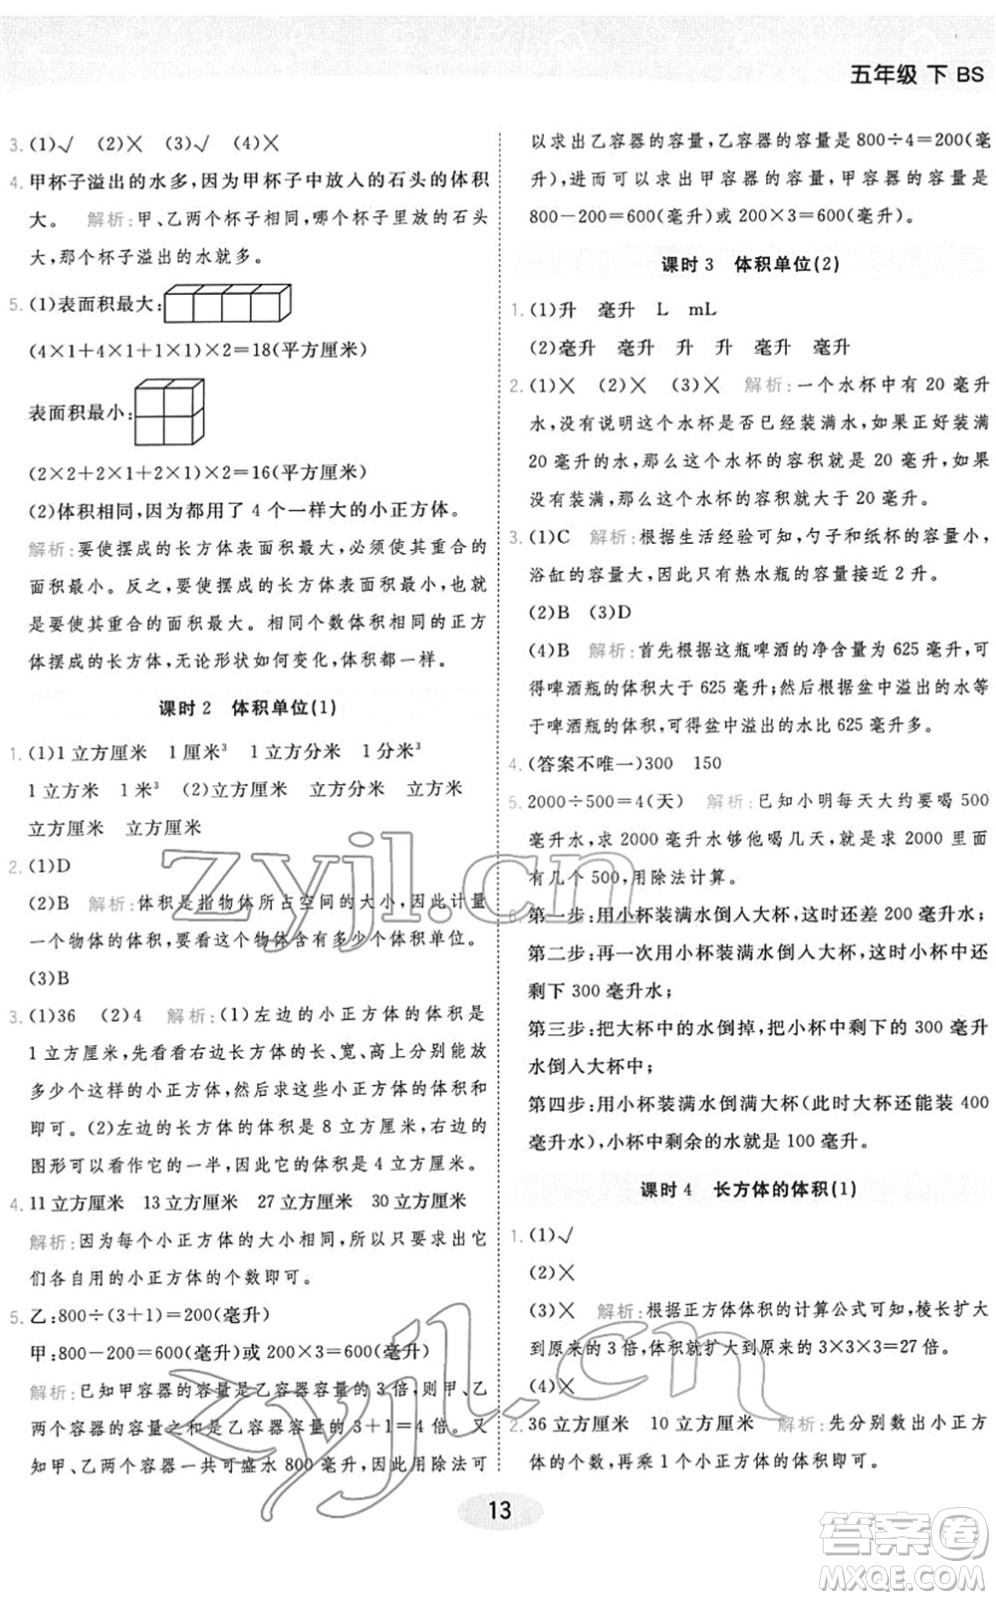 五年级 下 BS
3. (1)√ (2)✕ (3)√ (4)✕
4. 甲杯子溢出的水多,因为甲杯子中放入的石头的体积
大。 解析:甲、乙两个杯子相同,哪个杯子里放的石头
大,那个杯子溢出的水就多。
5. (1)表面积最大:
(4×1+4×1+1×1)×2=18(平方厘米)
表面积最小:
(2×2+2×1+2×1)×2=16(平方厘米)
(2)体积相同,因为都用了 4 个一样大的小正方体。
解析:要使摆成的长方体表面积最大,必须使其重合的
面积最小。反之,要使摆成的长方体表面积最小,就要
要使其重合的面积最大。相同个数体积相同的正方
体摆成的长方体,无论形状如何变化,体积都一样。
课时 2 体积单位(1)
1. (1)1 立方厘米 1 厘米³ 1 立方分米 1 分米³
1 立方米 1 米³ (2)立方厘米 立方分米 立方米
立方厘米 立方米 立方厘米
2. (1)D
(2)B 解析:体积是指物体所占空间的大小,因此计量
一个物体的体积,要看这个物体含有多少个体积单位。
(3)B
3. (1)36 (2)4 解析:(1)左边的小正方体的体积是
1 立方厘米,先看看右边长方体的长、宽、高上分别能放
多少个这样的小正方体,然后求这些小正方体的体积和
即可。(2)左边的长方体的体积是 8 立方厘米,右边的
图形可以看作它的一半,因此它的体积是 4 立方厘米。
4. 11 立方厘米 13 立方厘米 27 立方厘米 30 立方厘米
解析:因为每个小正方体的大小相同,所以只要求出它
们各自用的小正方体的个数即可。
5. 乙:800÷(3+1)=200(毫升)
甲:800-200=600(毫升)或 200×3=600(毫升)
解析:已知甲容器的容量是乙容器的 3 倍,则甲、乙
两个容器的容量之和是乙容器容量的 3+1=4 倍。又
知甲、乙两个容器一共可盛水 800 毫升,因此用除法可
以求出乙容器的容量,乙容器的容量是 800÷4=200(毫
升),进而可以求出甲容器的容量,甲容器的容量是
800-200=600(毫升)或 200×3=600(毫升)。
课时 3 体积单位(2)
1. (1)升 毫升 L mL
(2)毫升 毫升 升 升 毫升 毫升
2. (1)✕ (2)✕ (3)✕ 解析:一个水杯中有 20 毫升
水,没有说明这个水杯是否已经装满水,如果正好装满
20 毫升的水,那么这个水杯的容积就是 20 毫升,如果
没有装满,那么这个水杯的容积就大于 20 毫升。
3. (1)C 解析:根据生活经验可知,勺子和纸杯的容量小,
浴缸的容量大,因此只有热水瓶的容量接近 2 升。
(2)B (3)D
(4)B 解析:首先根据这瓶啤酒的净含量是 625 毫升,可
得啤酒瓶的体积大于 625 毫升,然后根据盆中溢出的水等
于啤酒瓶的体积,可得盆中溢出的水比 625 毫升多。
4. (答案不唯一)300 150
5. 2000÷500=4(天) 解析:已知小明每天大约要喝 500
毫升水,求 2000 毫升水够他喝几天,就是求 2000 里面
有几个 500,用除法计算。
6. 第一步:用小杯装满水倒入大杯,这时还差 200 毫升水;
第二步:再一次用小杯装满水倒入大杯,这时小杯中还
剩下 300 毫升水;
第三步:把大杯中的水倒掉,将小杯中剩下的 300 毫升
水倒入大杯中;
第四步:用小杯装满水倒满大杯(此时大杯还能装 400
毫升水),小杯中剩余的水就是 100 毫升。
课时 4 长方体的体积(1)
1. (1)√
(2)✕
(3)✕ 解析:根据正方体体积的计算公式可知,棱长扩大
到原来的 3 倍,体积扩大到原来的 3×3×3=27 倍。
(4)✕
2. 36 立方厘米 10 立方厘米 解析:先分别数出小正方
体的个数,再乘 1 个小正方体的体积即可。
13
zyjl.cn
zyjl.cn
答案圈
MXQE.COM